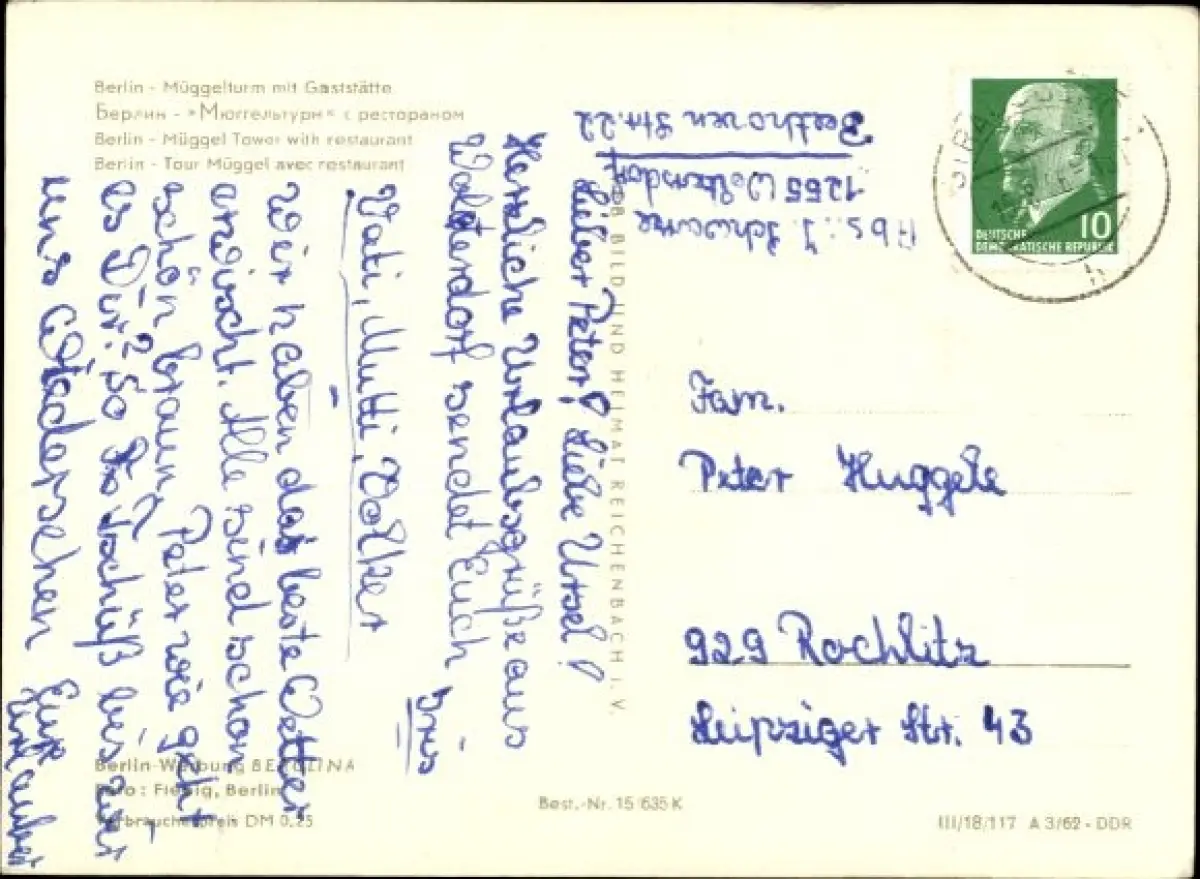 Berlin - Müggelturm mit Gaststätte
Берлин - »Мюггельтурм« с рестораном
Berlin - Müggel Tower with restaurant
Berlin - Tour Müggel avec restaurant
Abs.: J. Schwarze
1255 Woltersdorf
Beethoven Str. 22
DEUTSCHE
DEMOKRATISCHE REPUBLIK
10
Lieber Peter! Liebe Ursel!
Herzliche Urlaubsgrüße aus
Woltersdorf sendet Euch
Iris
Vati, Mutti, Volker
Wir haben das beste Wetter
erwischt. Alle sind schon
schön braun. Peter wie geht
es Dir? So Tschüß bis wir
uns wiedersehen Eure
Urlauber
Fam.
Peter Huggele
929 Rochlitz
Leipziger Str. 43
BILD UND HEIMAT REICHENBACH I. V.
Berlin-Werbung BEROLINA
Foto: Fiebig, Berlin
Verbraucherpreis DM 0,25
Best.-Nr. 15/635 K
III/18/117 A 3/62 - DDR